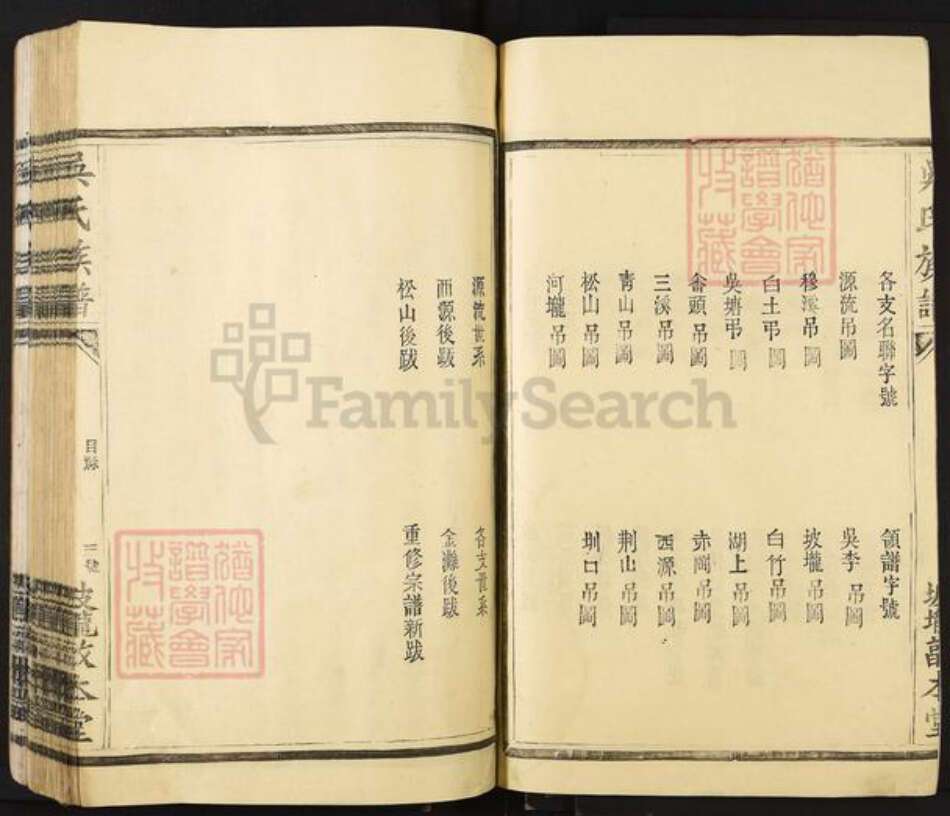 吳氏族譜
各支名聯字號
領譜字號
源流吊圖
吳李吊圖
穆溪吊圖
坡壠吊圖
白土弔圖
白竹吊圖
吳塘弔圖
湖上吊圖
畬頭吊圖
赤岡吊圖
三溪吊圖
西源吊圖
靑山吊圖
荆山吊圖
松山吊圖
圳口吊圖
河壠吊圖
源流世系
各支世系
西源後跋
金灘後跋
松山後跋
重修宗譜新跋
吳氏族譜
目錄
三號
坡壠敦本堂
猶他家譜學會收藏
猶他家譜學會收藏
FamilySearch